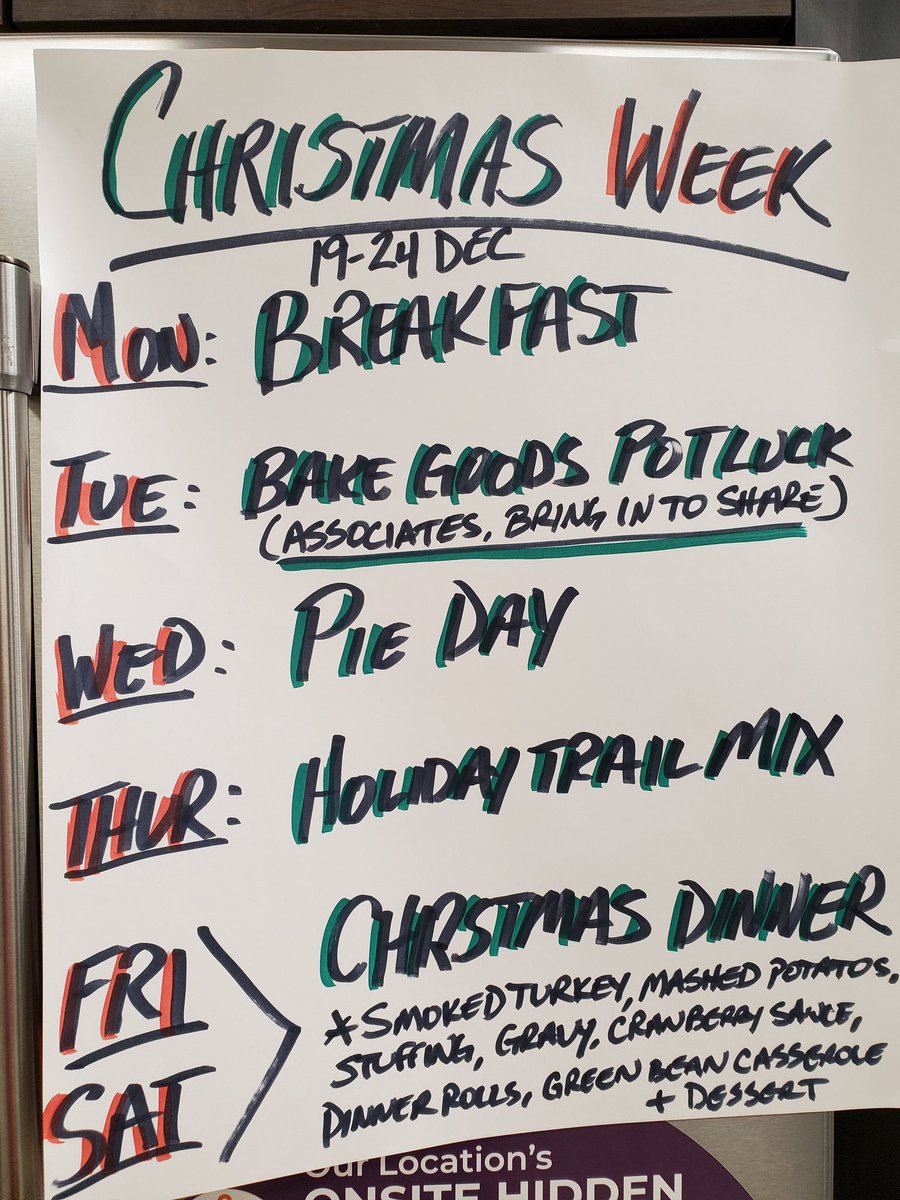 CHRISTMAS WEEK
19-24 DEC
MON: BREAKFAST
TUE: BAKE GOODS POTLUCK
(ASSOCIATES, BRING IN TO SHARE)
WED: PIE DAY
THUR: HOLIDAY TRAIL MIX
FRI
SAT
CHRSTMAS DINNER
*SMOKED TURKEY, MASHED POTATOS,
STUFFING, GRAVY, CRANBERRY SAUCE,
DINNER ROLLS, GREEN BEAN CASSEROLE
+ DESSERT
Our Location's
ONSITE HIDDEN